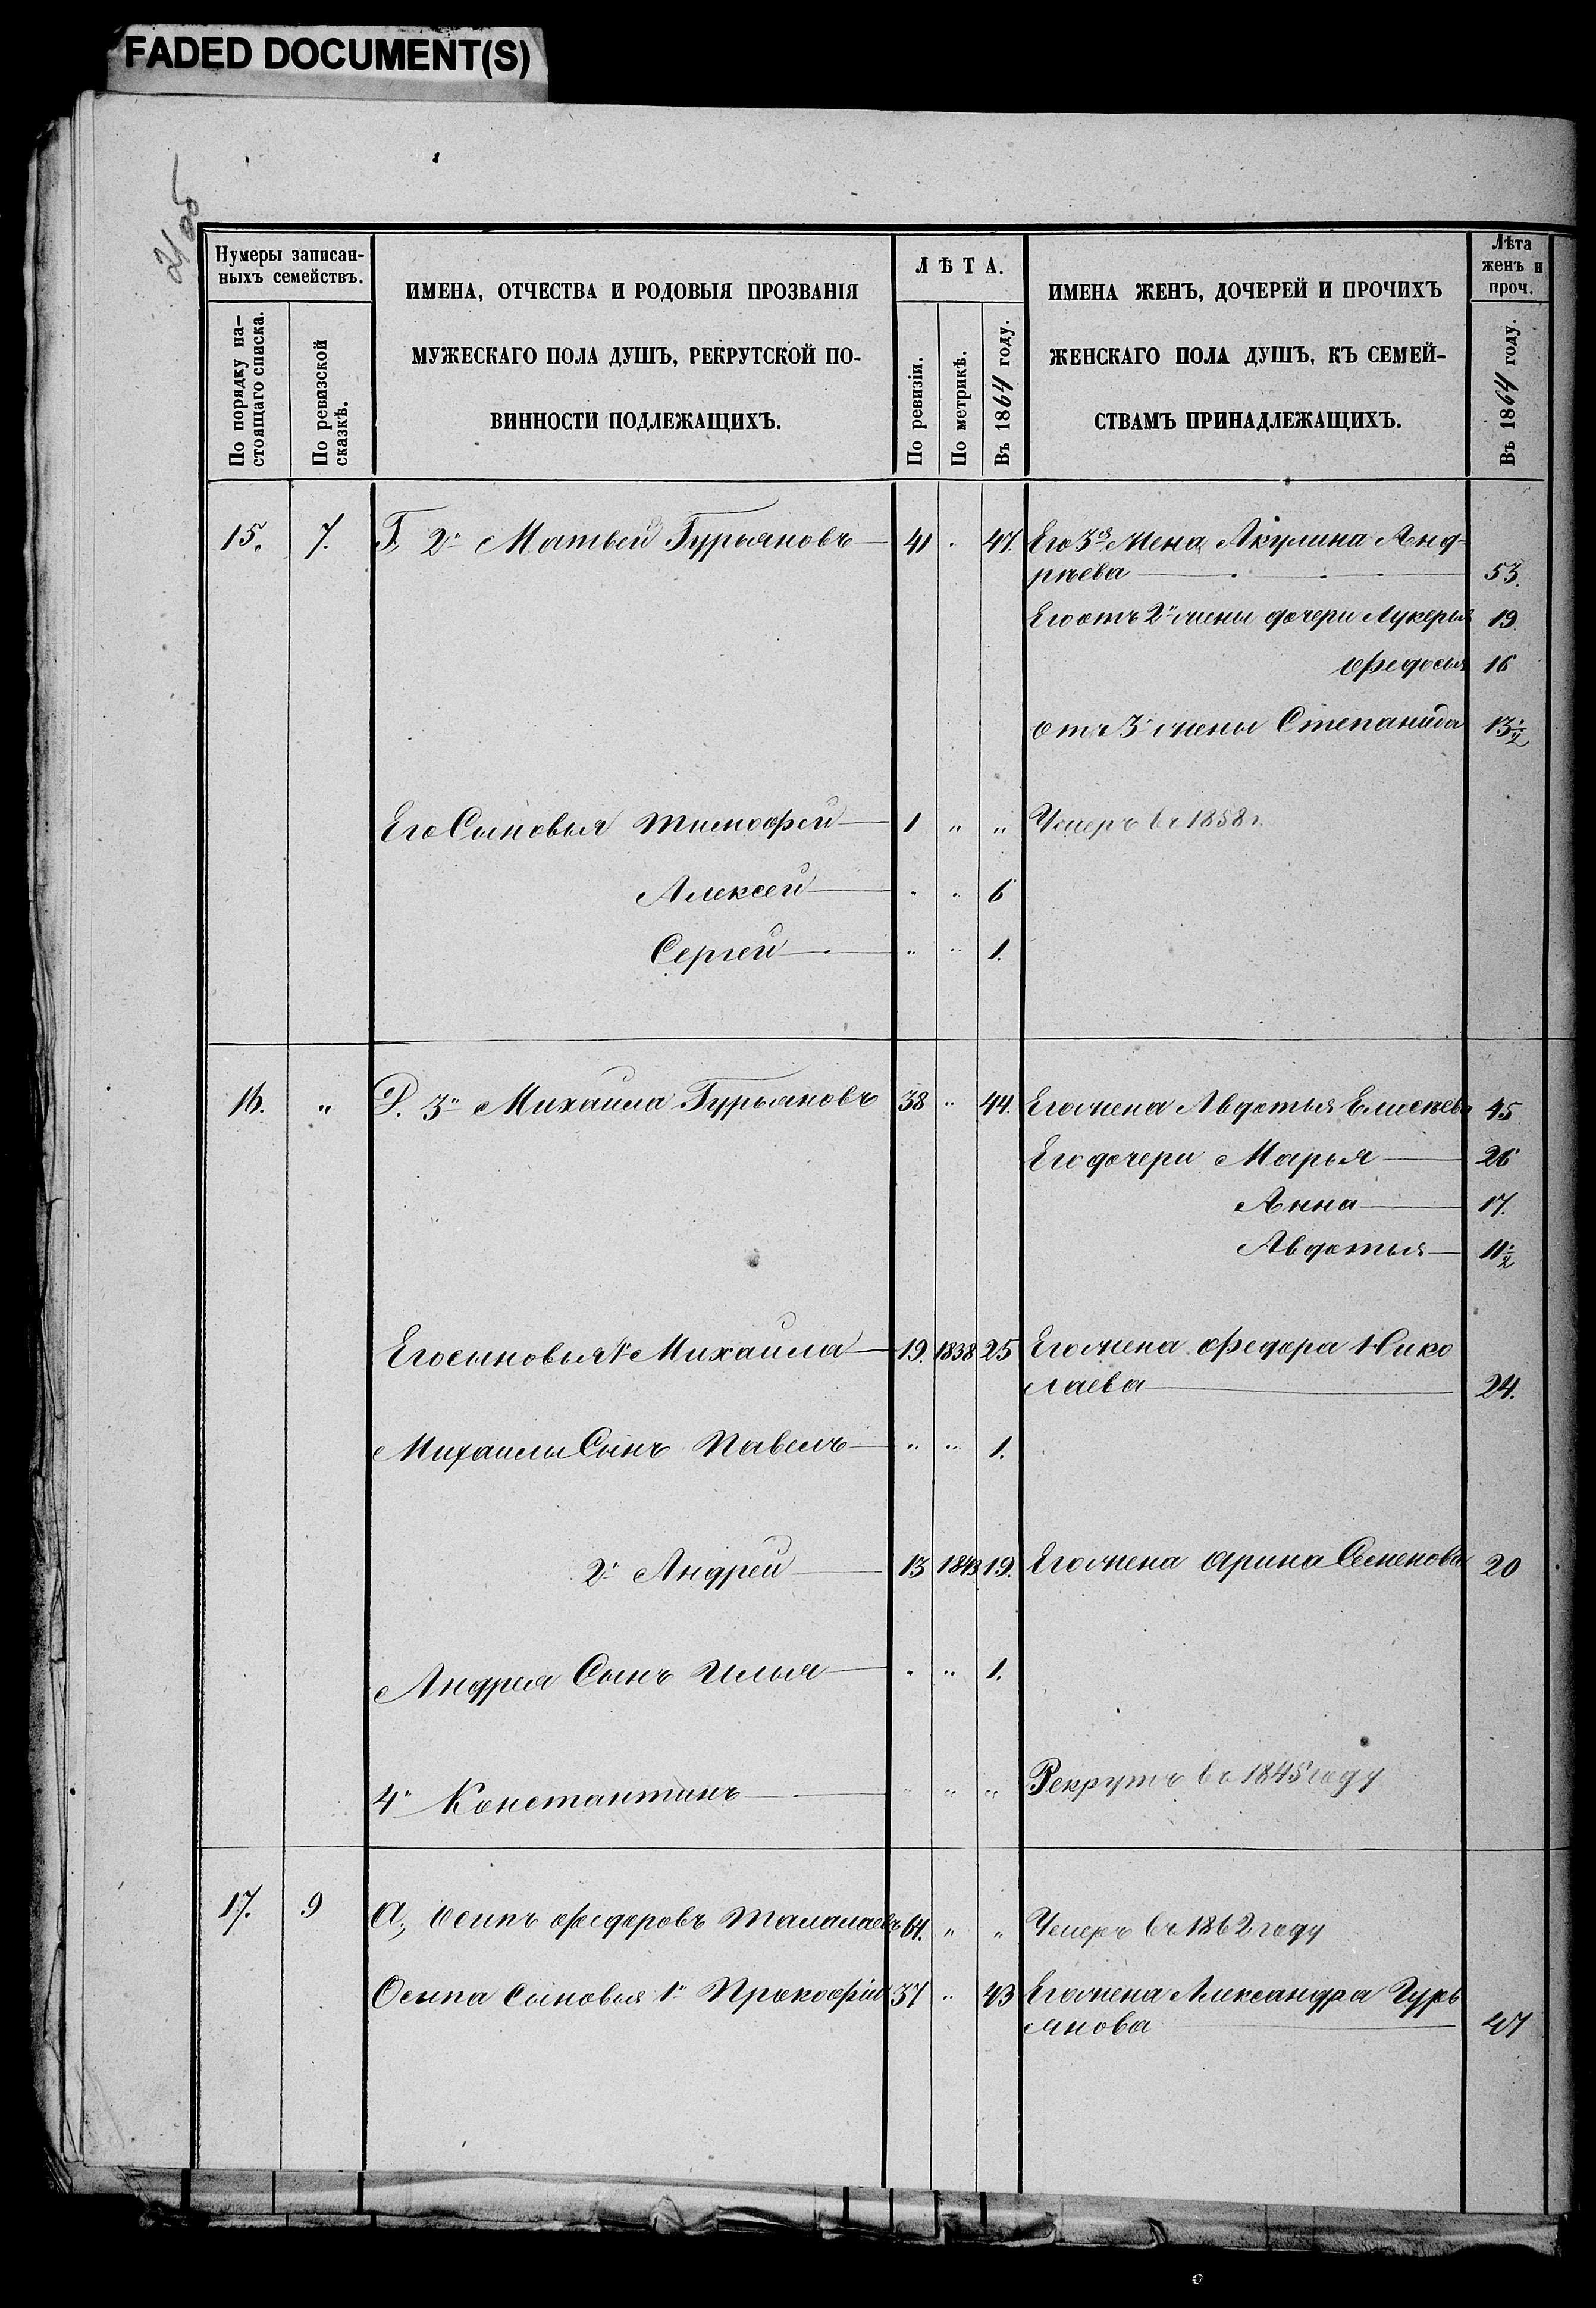 FADED DOCUMENT(S)
Нумеры записан-
ныхъ семействъ.
По порядку на-
стоящаго списка.
По ревизской
сказкѣ.
ИМЕНА, ОТЧЕСТВА И РОДОВЫЯ ПРОЗВАНІЯ
МУЖЕСКАГО ПОЛА ДУШЪ, РЕКРУТСКОЙ ПО-
ВИННОСТИ ПОДЛЕЖАЩИХЪ.
ЛѢТА.
По ревизіи.
По метрикѣ.
Въ 1864 году.
ИМЕНА ЖЕНЪ, ДОЧЕРЕЙ И ПРОЧИХЪ
ЖЕНСКАГО ПОЛА ДУШЪ, КЪ СЕМЕЙ-
СТВАМЪ ПРИНАДЛЕЖАЩИХЪ.
Лѣта
женъ и
проч.
Въ 1864 году.
15. 7. Г. 2й Матвей Гурьяновъ 41 " 47. Его 3я жена Акулина Анд-
рѣева 53.
Его отъ 2й жены дочери Лукерья 19
Федосья 16
отъ 3й жены Степанида 13½
Его Сыновья Тимофей 1 " " Умеръ въ 1858 г.
Алексей " " 6
Сергей " " 1.
16. " Д. 3й Михаила Гурьяновъ 38 " 44. Его жена Авдотья Елисѣева 45
Его дочери Марья 26
Анна 17.
Авдотья 11½
Его сыновья 1й Михаила 19. 1838 25 Его жена Федора Нико
лаева 24.
Михаилы Сынъ Павелъ " " 1.
2й Андрей 13 1843 19. Его жена Арина Семенова 20
Андрея Сынъ Илья " " 1.
4й Константинъ " " " Рекрутъ въ 1845 году
17. 9 А, Осипъ Федоровъ Талалаевъ 64. " " Умеръ въ 1862 году
Осипа Сыновья 1й Прокофий 37 " 43 Его жена Александра Гурь
янова 47